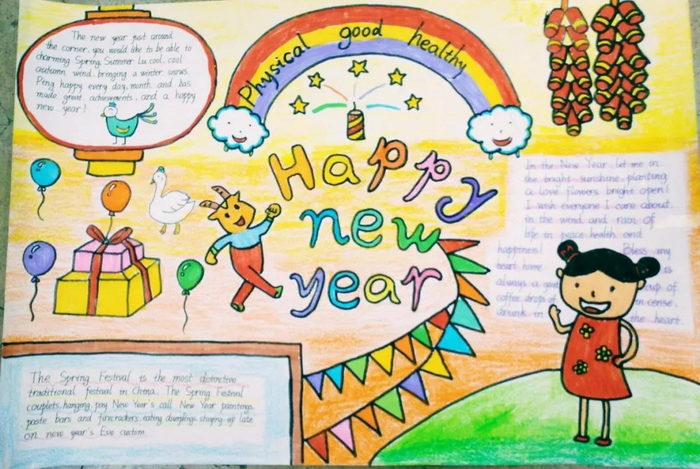 The new year just around
the corner, you would like to be able to
charming Spring, Summer Lu cool, cool
autumn wind, bringing a winter works.
Peng happy every day, month and has
made great achievements, and a happy
new year!
Physical good healthy
Happy
new
year
In the New Year, let me in
the bright sunshine, planting
a love flowers bright open!
I wish everyone I care about
in the wind and rain of
life in peace, health and
happiness! Bless my
heart home is
always a cup of
coffee, drops of in cense,
drunk in the heart.
The Spring Festival is the most distinctive
traditional festival in China. The Spring Festival
couplets, hanging, pay New Year's call New Year paintings,
paste bars and firecrackers, eating dumplings, staying up late
on new year's Eve custom